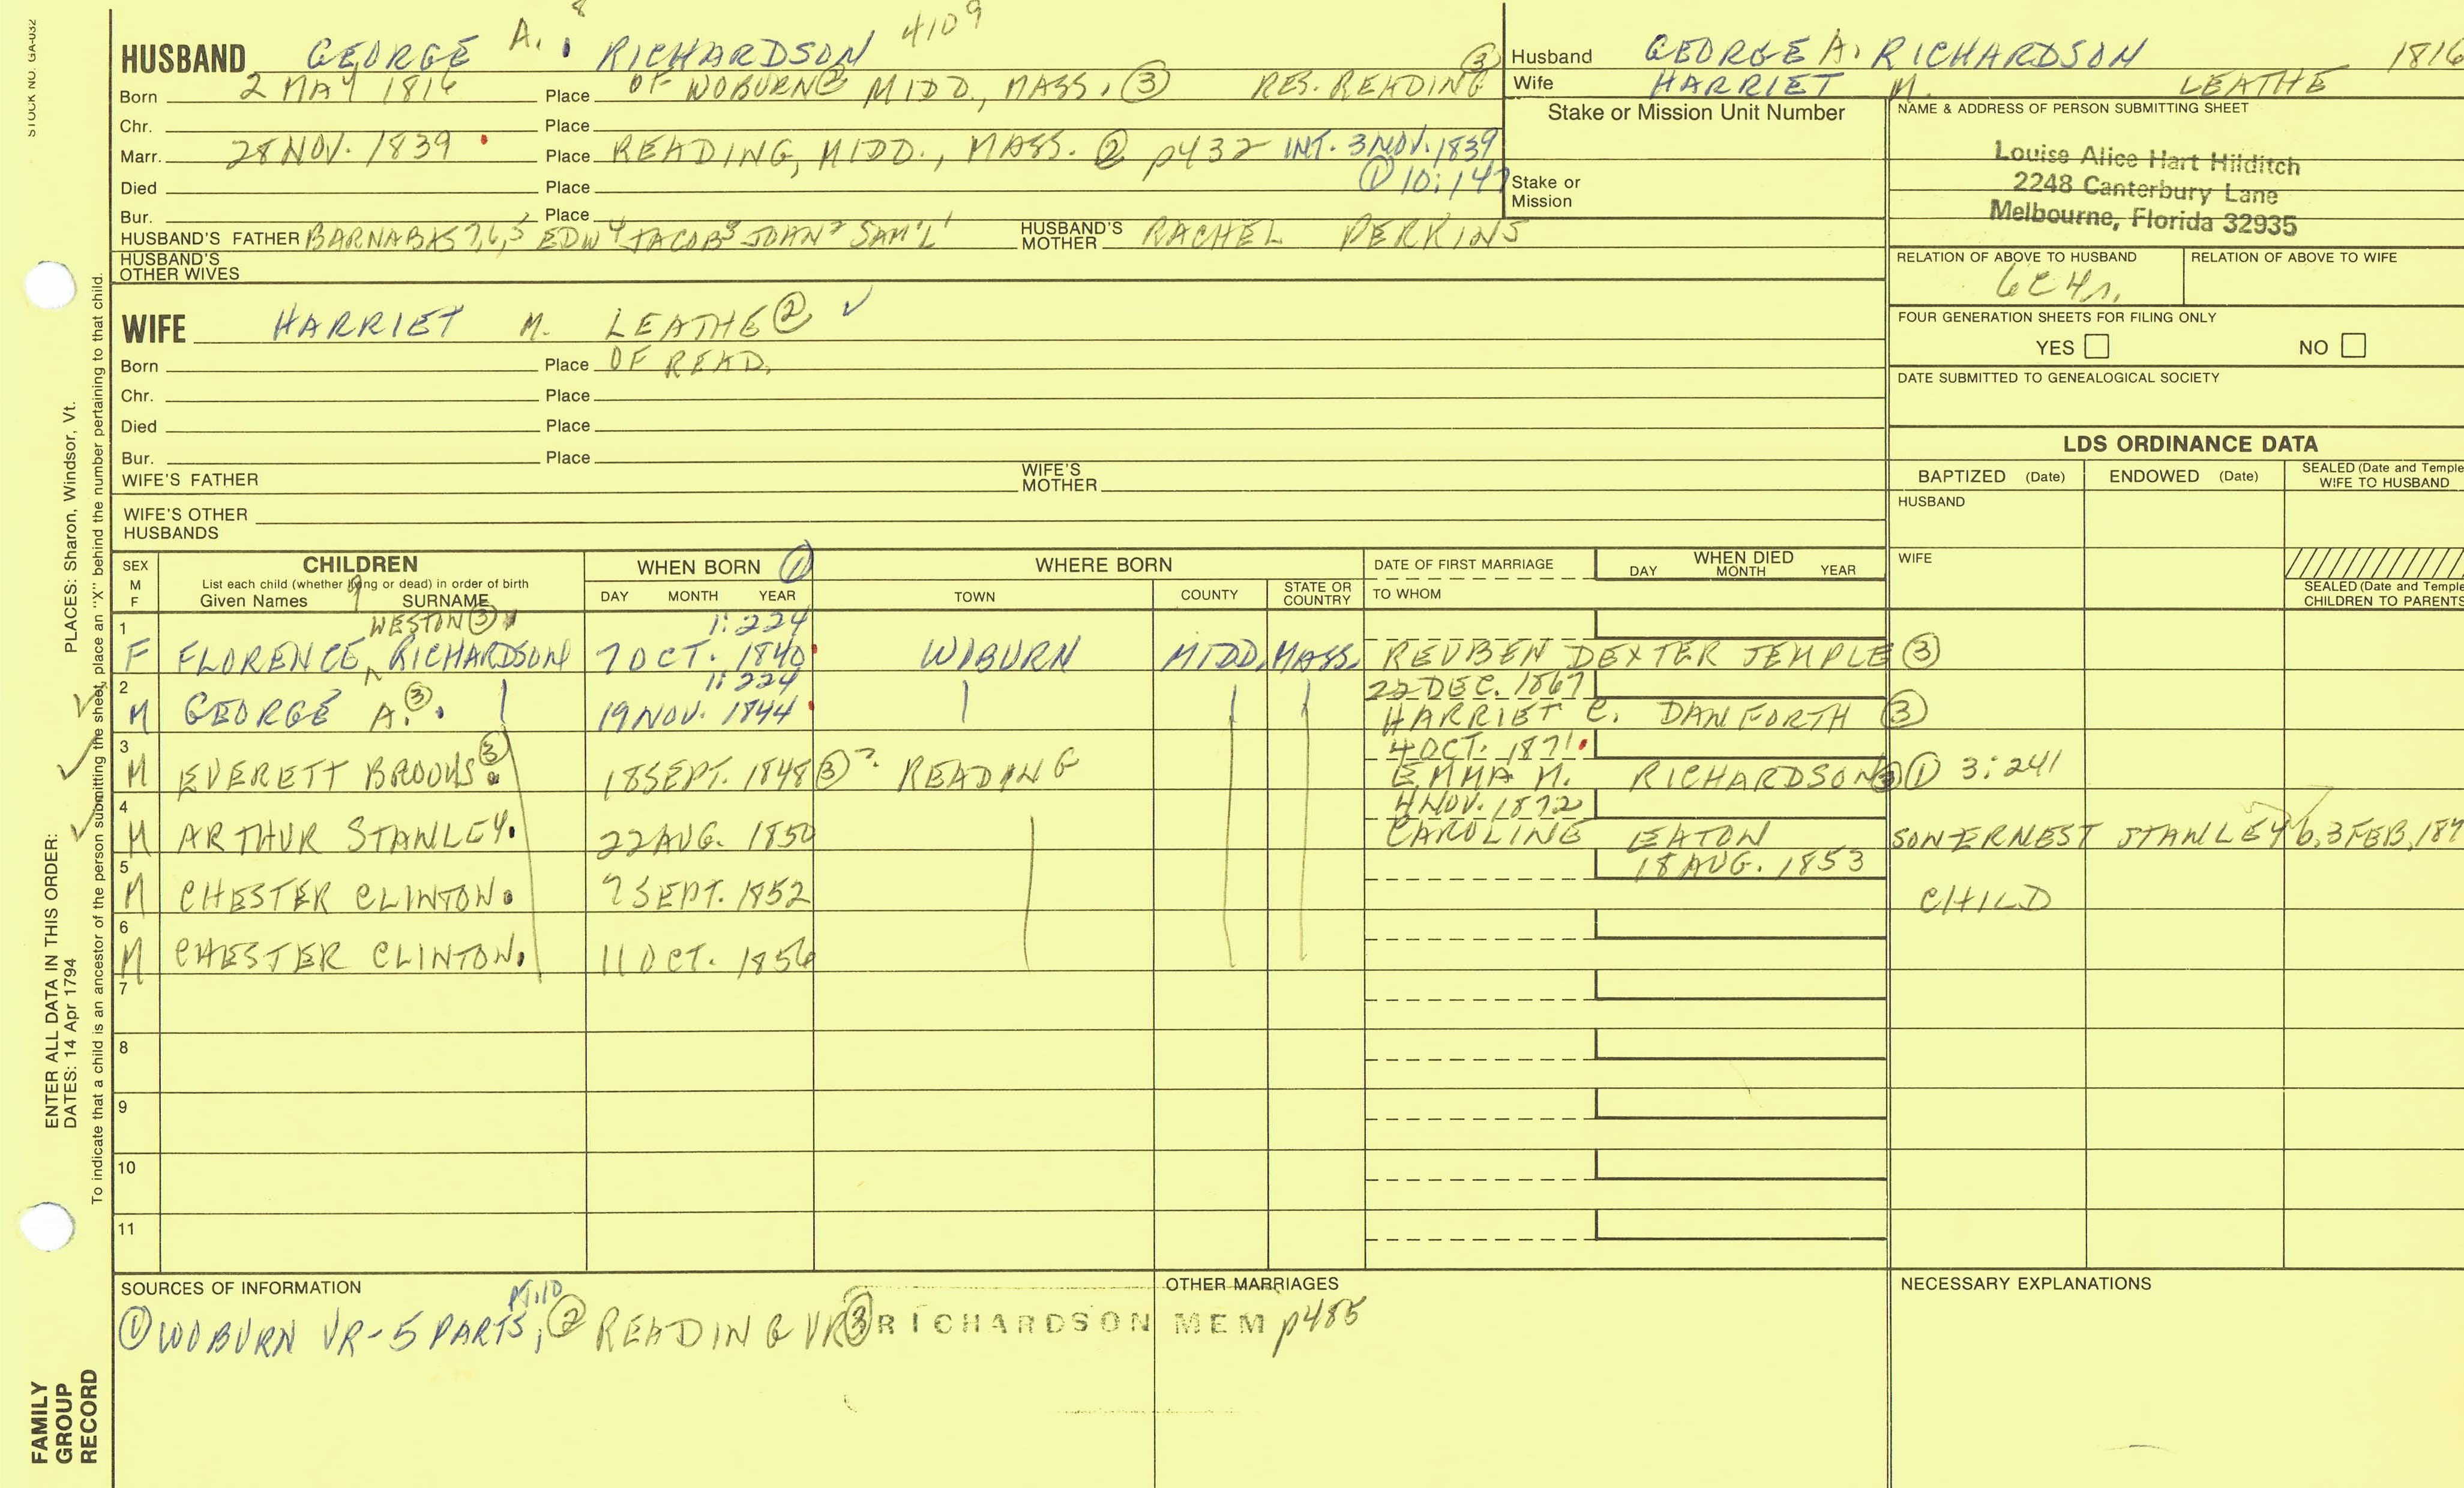 STOCK NO. GA-032
HUSBAND GEORGE A. 8 RICHARDSON 4109
Born 2 MAY 1816 Place OF WOBURN ② MIDD., MASS. ③ RES. READING ③
Chr. Place
Marr. 28 NOV. 1839 Place READING, MIDD., MASS. ② p432 INT. 3 NOV. 1839
① 10:147
Died Place
Bur. Place
HUSBAND'S FATHER BARNABAS 7,6,5 EDW 4 JACOB 3 JOHN 2 SAM'L 1 HUSBAND'S MOTHER RACHEL PERKINS
HUSBAND'S OTHER WIVES
WIFE HARRIET M. LEATHE ② ✓
Born Place OF READ.
Chr. Place
Died Place
Bur. Place
WIFE'S FATHER WIFE'S MOTHER
WIFE'S OTHER HUSBANDS
Husband GEORGE A. RICHARDSON 1816
Wife HARRIET M. LEATHE
Stake or Mission Unit Number
Stake or Mission
NAME & ADDRESS OF PERSON SUBMITTING SHEET
Louise Alice Hart Hilditch
2248 Canterbury Lane
Melbourne, Florida 32935
RELATION OF ABOVE TO HUSBAND RELATION OF ABOVE TO WIFE
6C4r.
FOUR GENERATION SHEETS FOR FILING ONLY
YES NO
DATE SUBMITTED TO GENEALOGICAL SOCIETY
LDS ORDINANCE DATA
BAPTIZED (Date) ENDOWED (Date) SEALED (Date and Temple
WIFE TO HUSBAND
HUSBAND
WIFE
SEALED (Date and Temple
CHILDREN TO PARENTS
SEX M F
CHILDREN
List each child (whether living or dead) in order of birth
Given Names SURNAME
WHEN BORN ①
DAY MONTH YEAR
WHERE BORN
TOWN COUNTY STATE OR COUNTRY
DATE OF FIRST MARRIAGE
TO WHOM
WHEN DIED
DAY MONTH YEAR
WESTON ③ 1:224
1 F FLORENCE RICHARDSON 7 OCT. 1840 WOBURN MIDD. MASS. REUBEN DEXTER TEMPLE ③
1:224 22 DEC. 1867
2 M GEORGE A. ③ 19 NOV. 1844 HARRIET C. DANFORTH ③
4 OCT. 1871
3 M EVERETT BROOKS ③ 18 SEPT. 1848 ③ ? READING EMMA M. RICHARDSON ③ ① 3:241
4 NOV. 1872
4 M ARTHUR STANLEY. 22 AUG. 1850 CAROLINE EATON SON ERNEST STANLEY b. 3 FEB, 187
18 AUG. 1853
5 M CHESTER CLINTON. 7 SEPT. 1852 CHILD
6 M CHESTER CLINTON. 11 OCT. 1856
7
8
9
10
11
SOURCES OF INFORMATION
PT.10
① WOBURN VR-5 PARTS, ② READING VR ③ RICHARDSON MEM p485
OTHER MARRIAGES
NECESSARY EXPLANATIONS
PLACES: Sharon, Windsor, Vt.
To indicate that a child is an ancestor of the person submitting the sheet, place an "X" behind the number pertaining to that child.
ENTER ALL DATA IN THIS ORDER:
DATES: 14 Apr 1794
FAMILY
GROUP
RECORD